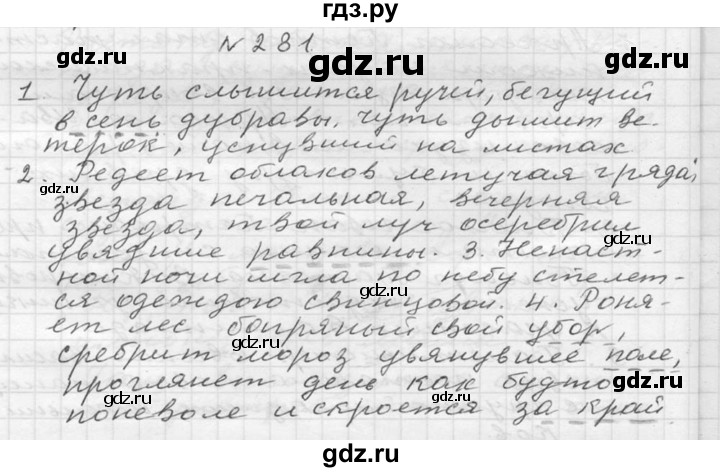 гдз.ру
№ 281
gdz.ru gdz.ru
1. Чуть слышится ручей, бегущий
в сень дубравы. Чуть дышит ве-
терок, уснувший на листах
2. Редеет облаков летучая гряда;
звезда печальная, вечерняя
звезда, твой луч осеребрил
увядшие равнины. 3. Ненаст-
ной ночи мгла по небу стелет-
ся одеждою свинцовой. 4. Роня-
ет лес багряный свой убор,
сребрит мороз увянувшее поле,
проглянет день как будто
поневоле и скроется за край
gdz.ru
gdz.ru
gdz.ru
gdz.ru
gdz.ru
gdz.ru
gdz.ru gdz.ru